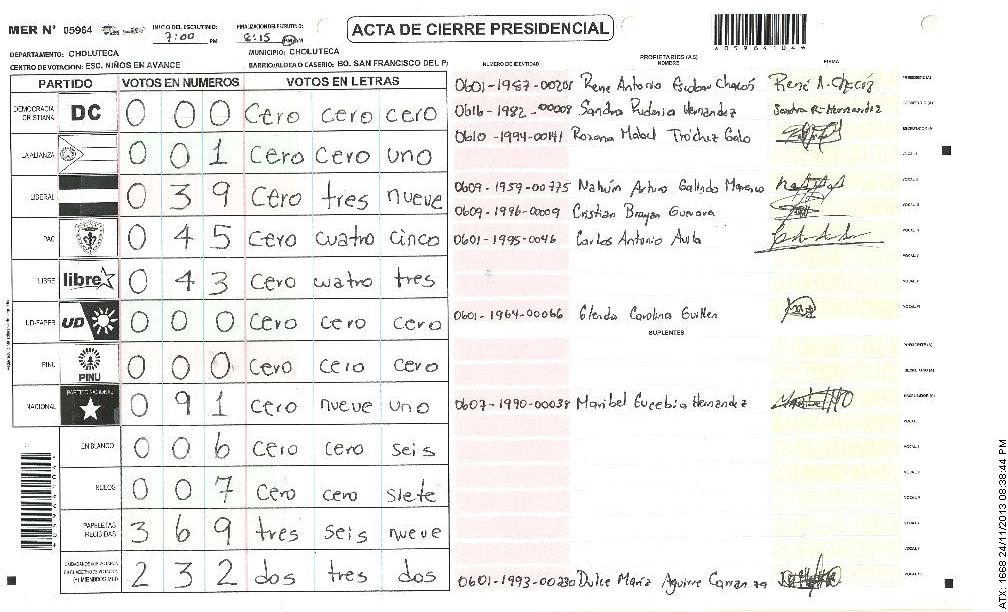 MER N° 05964
INICIO DEL ESCRUTINIO: 7:00 PM
FINALIZACION DEL ESCRUTINIO: 8:15
ACTA DE CIERRE PRESIDENCIAL
DEPARTAMENTO: CHOLUTECA
MUNICIPIO: CHOLUTECA
CENTRO DE VOTACION: ESC. NIÑOS EN AVANCE
BARRIO/ALDEA O CASERIO: BO. SAN FRANCISCO DEL P
PARTIDO VOTOS EN NUMEROS VOTOS EN LETRAS
DEMOCRACIA CRISTIANA DC 0 0 0 cero cero cero
LA ALIANZA 0 0 1 cero cero uno
LIBERAL 0 3 9 cero tres nueve
PAC 0 4 5 cero cuatro cinco
LIBRE libre 0 4 3 cero cuatro tres
UD-FAPER UD 0 0 0 cero cero cero
PINU PINU 0 0 0 cero cero cero
NACIONAL PARTIDO NACIONAL 0 9 1 cero nueve uno
EN BLANCO 0 0 6 cero cero seis
NULOS 0 0 7 cero cero siete
PAPELETAS RECIBIDAS 3 6 9 tres seis nueve
(+) MIEMBROS MER 2 3 2 dos tres dos
NUMERO DE IDENTIDAD PROPIETARIOS (AS) NOMBRE FIRMA
0601-1987-00208 Rene Antonio Escobar Chacós René A. Chacós PRESIDENTE(A)
0616-1982-00008 Sandra Hernández Sandra R. Hernandez SECRETARIO (A)
0610-1994-00141 Roxana Mabel Tróchez Galo ESCRUTADOR (A)
VOCAL I
0609-1959-00775 Nahún Arturo Galindo VOCAL II
0609-1996-0009 Cristian Brayan Guevara VOCAL III
0601-1995-0046 Carlos Antonio Avila VOCAL IV
VOCAL V
VOCAL VI
0601-1964-00066 Glenda Carolina Guillen
SUPLENTES
PRESIDENTE(A)
SECRETARIO (A)
0607-1990-00038 Maribel Eucebia Hernandez ESCRUTADOR (A)
0601-1993-00230 Dulce María Aguirre
ATX: 1668 24/11/2013 08:38:44 PM